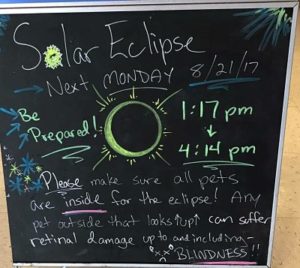 Solar Eclipse
→ Next MONDAY 8/21/17
→ Be
→ Prepared!
1:17 pm
↓
4:14 pm
Please make sure all pets
are inside for the eclipse! Any
pet outside that looks ↑up↑ can suffer
retinal damage up to and including -
BLINDNESS!!